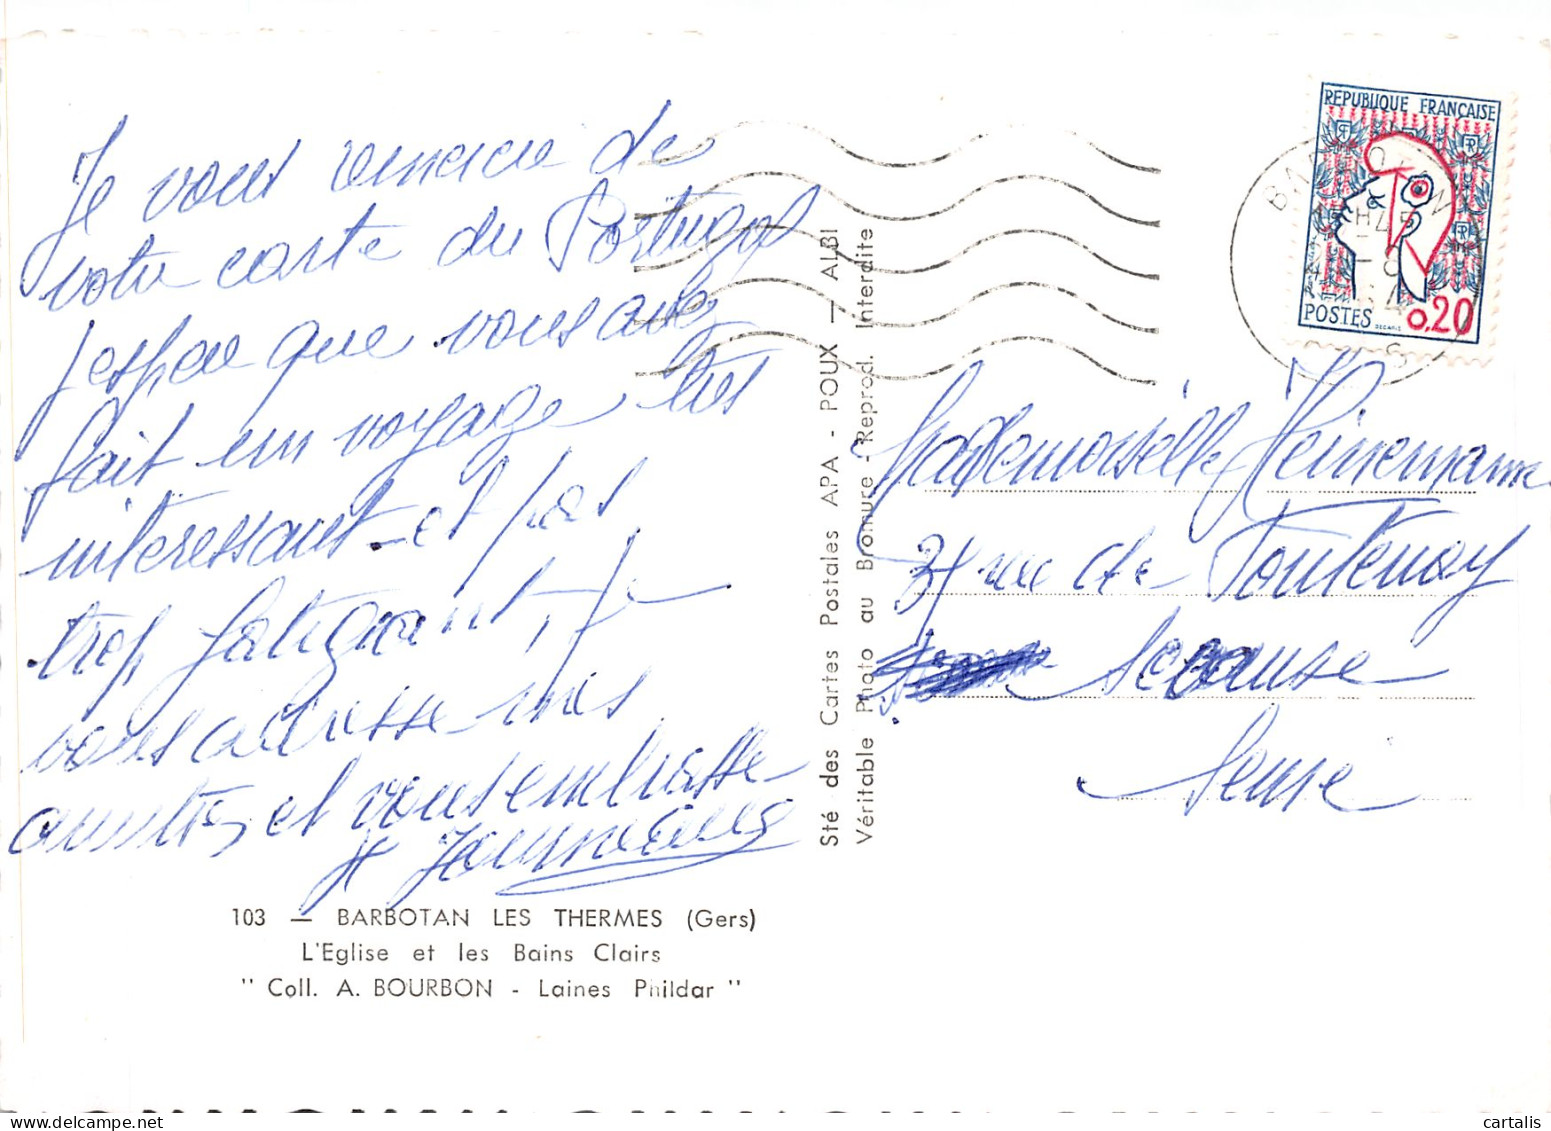 Je vous remercie de
votre carte du Portugal
j'espère que vous avez
fait un voyage très
intéressant et pas
trop fatigant, je
vous adresse mes
amitiés et vous embrasse
103 — BARBOTAN LES THERMES (Gers)
L'Eglise et les Bains Clairs
" Coll. A. BOURBON - Laines Phildar "
Sté des Cartes Postales APA - POUX — ALBI
Véritable Photo au Bromure - Reprod. Interdite
REPUBLIQUE FRANÇAISE
POSTES
0,20
DECARIS
Mademoiselle Heinemann
31 rue de Fontenay
Sceaux
Seine
cartalis